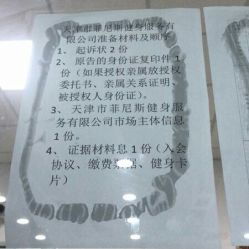 天津市菲尼斯健身服务有
限公司准备材料及顺序
1、 起诉状 2 份
2、 原告的身份证复印件 1
份（如果授权亲属放授权
委托书、亲属关系证明、
被授权人身份证）。
3、 天津市菲尼斯健身服
务有限公司市场主体信息
1 份。
4、 证据材料息 1 份（入会
协议、缴费票据、健身卡
片）